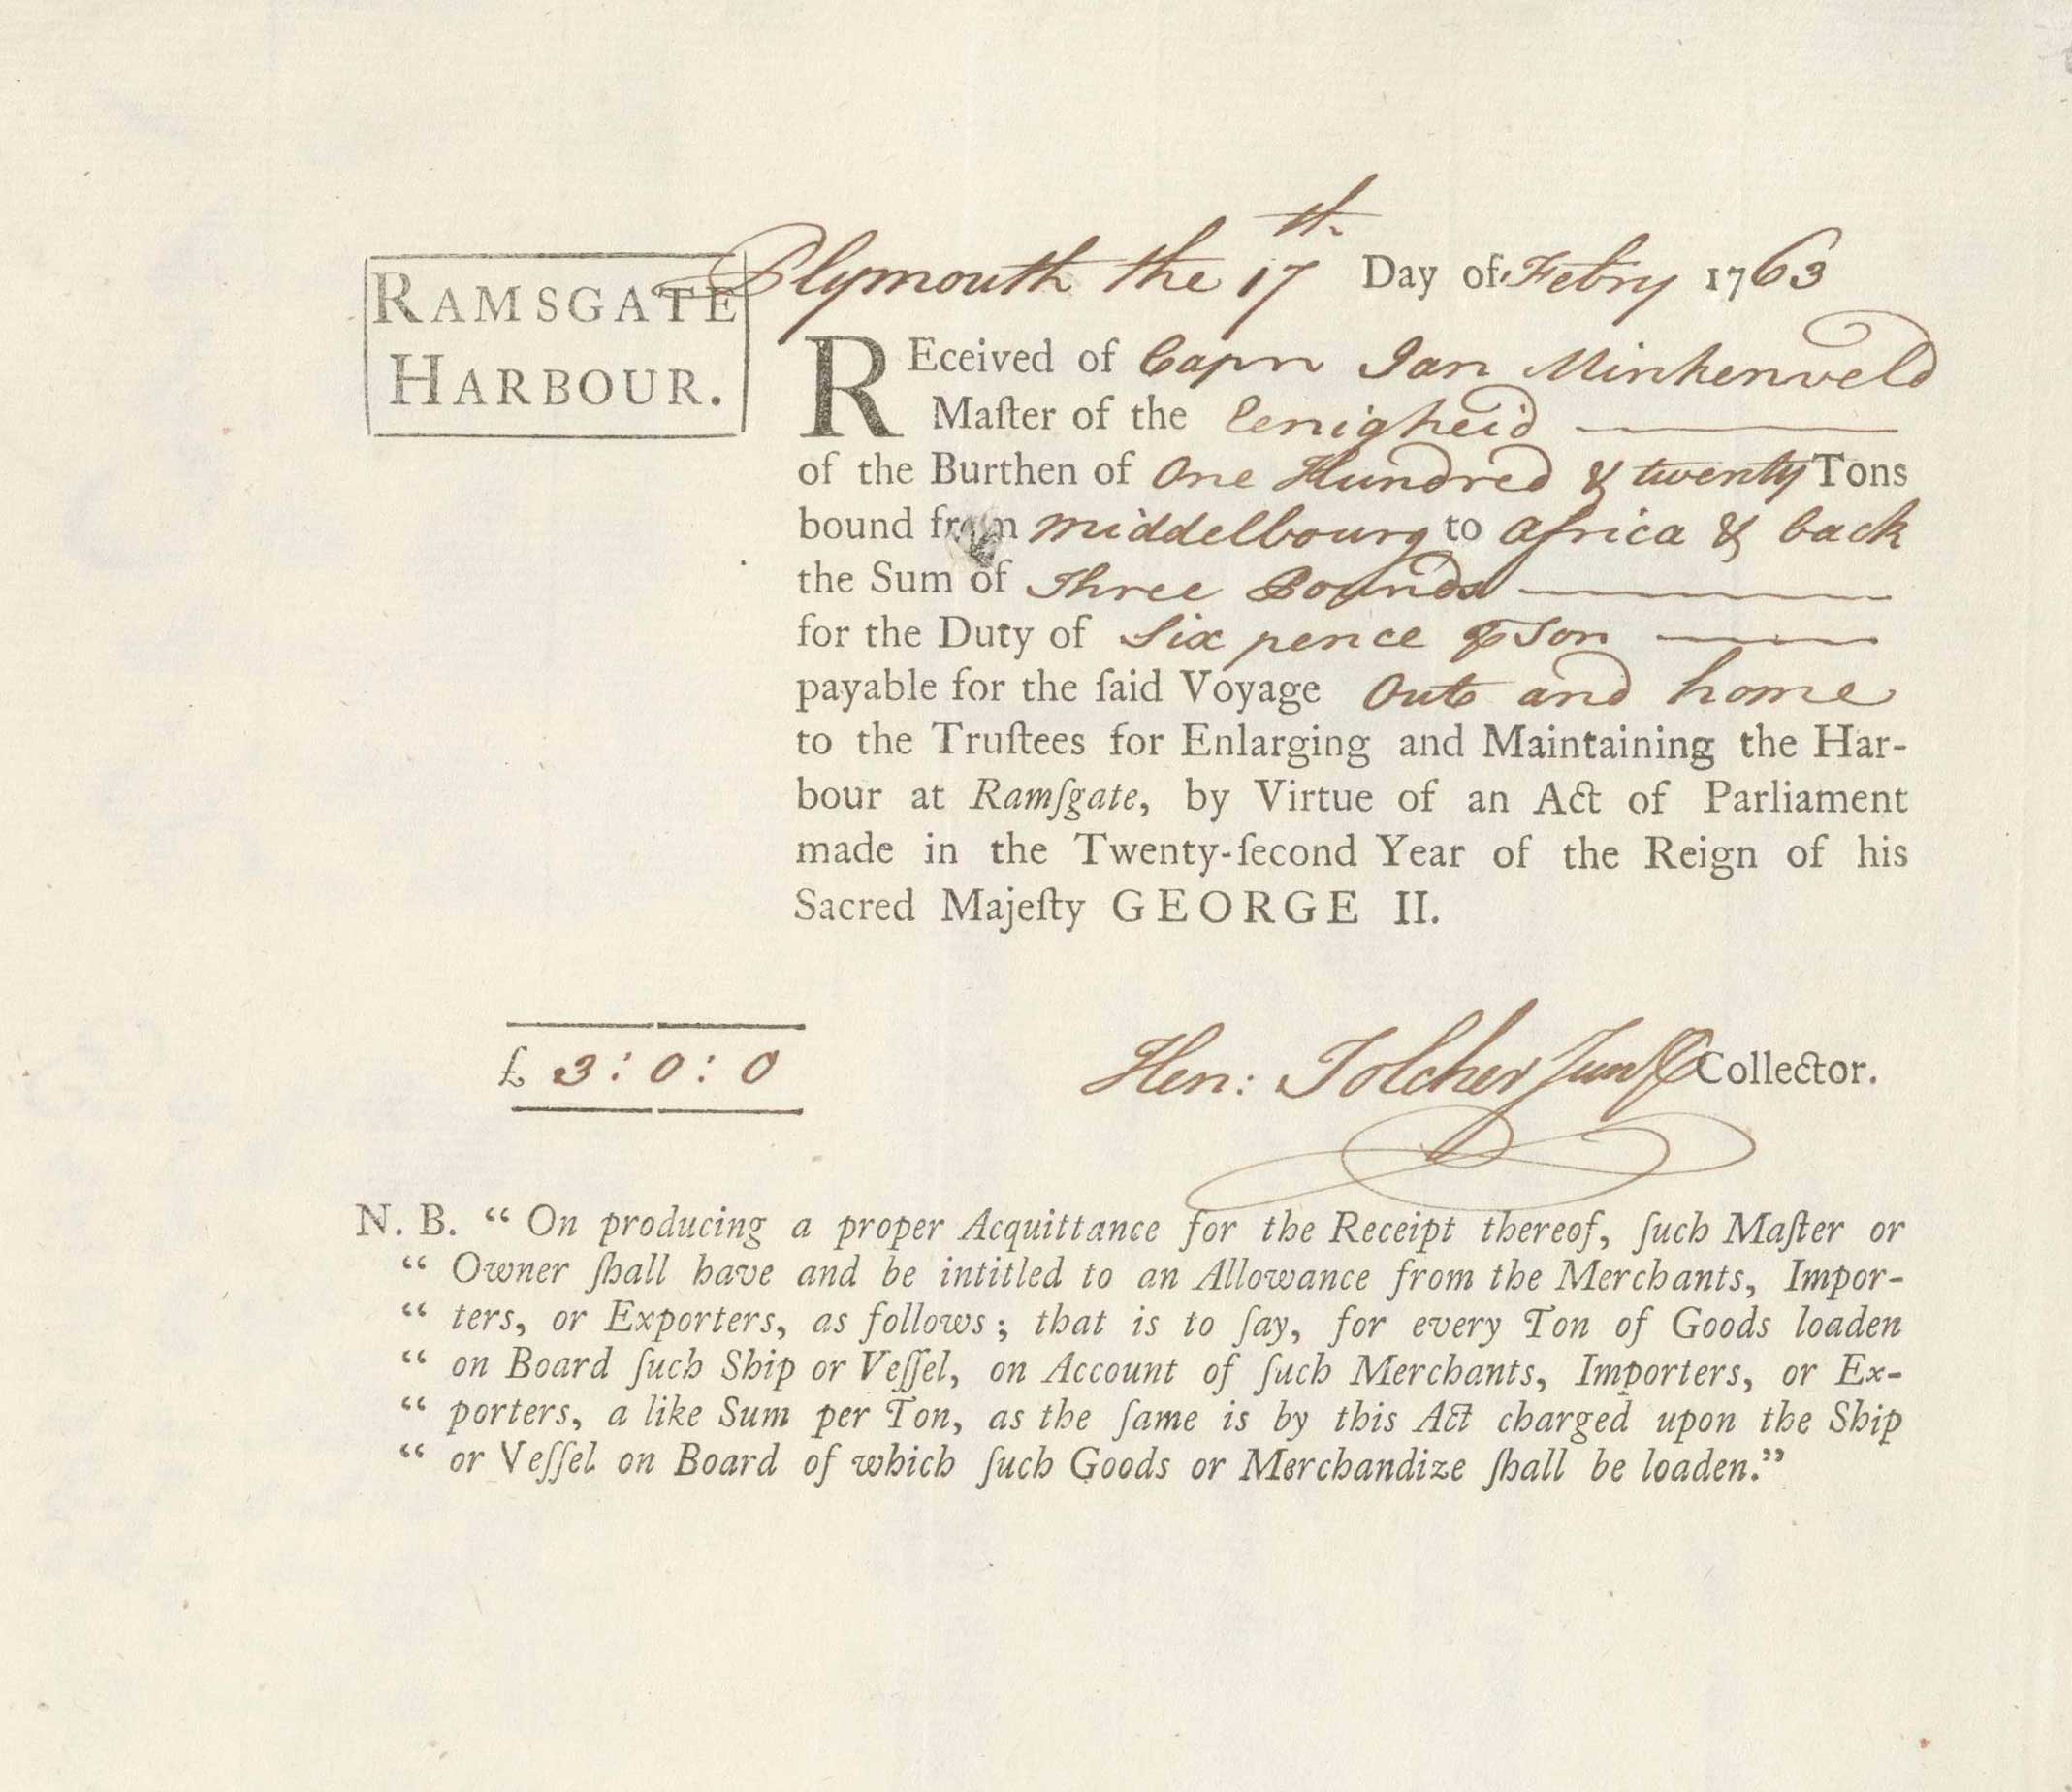 RAMSGATE
HARBOUR.
Plymouth the 17th. Day of Febry 1763
REceived of Capn Jan Minkenveld
Maſter of the Eenigheid
of the Burthen of One Hundred & twenty Tons
bound from Middelbourg to Africa & back
the Sum of Three Pounds
for the Duty of Six pence ⅌ Ton
payable for the ſaid Voyage Out and home
to the Truſtees for Enlarging and Maintaining the Har-
bour at Ramſgate, by Virtue of an Act of Parliament
made in the Twenty-ſecond Year of the Reign of his
Sacred Majeſty GEORGE II.
£ 3 : 0 : 0
Hen: Tolcher Junr Collector.
N. B. “ On producing a proper Acquittance for the Receipt thereof, ſuch Maſter or
“ Owner ſhall have and be intitled to an Allowance from the Merchants, Impor-
“ ters, or Exporters, as follows; that is to ſay, for every Ton of Goods loaden
“ on Board ſuch Ship or Veſſel, on Account of ſuch Merchants, Importers, or Ex-
“ porters, a like Sum per Ton, as the ſame is by this Act charged upon the Ship
“ or Veſſel on Board of which ſuch Goods or Merchandize ſhall be loaden.”